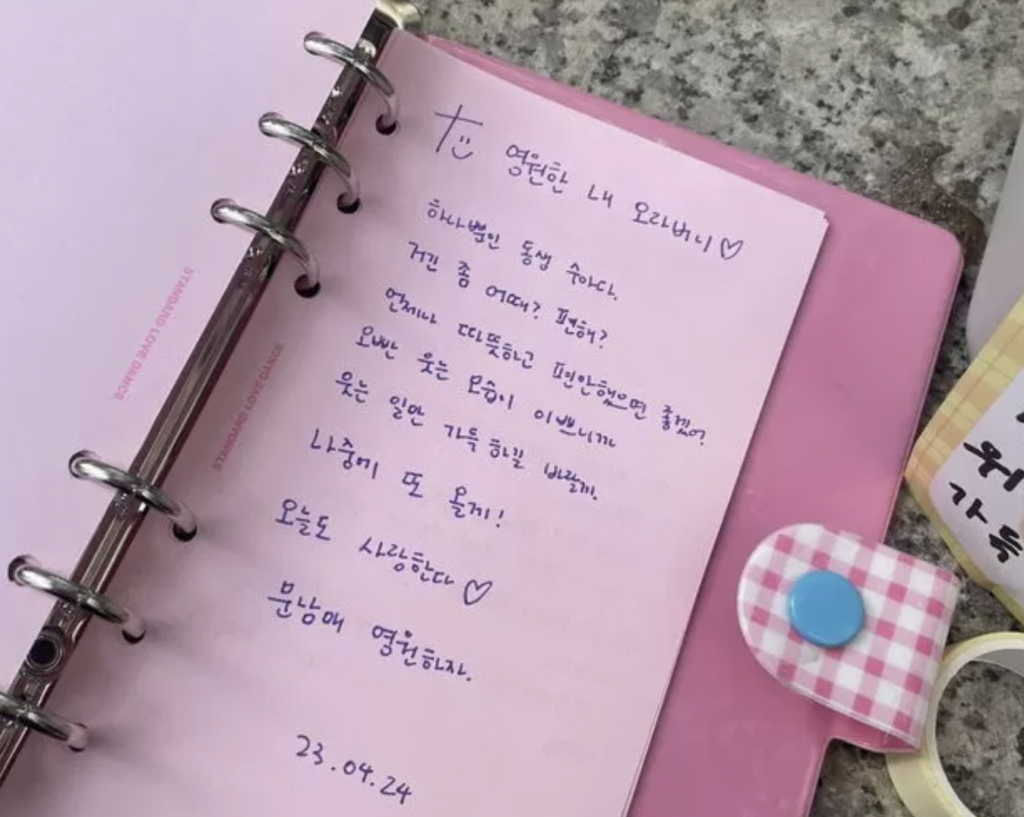 To 영원한 내 오라버니♡
하나뿐인 동생 수아다.
거긴 좀 어때? 편해?
언제나 따뜻하고 편안했으면 좋겠어.
오빤 웃는 모습이 이쁘니까
웃는 일만 가득하길 바랄게.
나중에 또 올게!
오늘도 사랑한다♡
문남매 영원하자.
23.04.24
STANDARD LOVE DANCE
STANDARD LOVE DANCE
가득